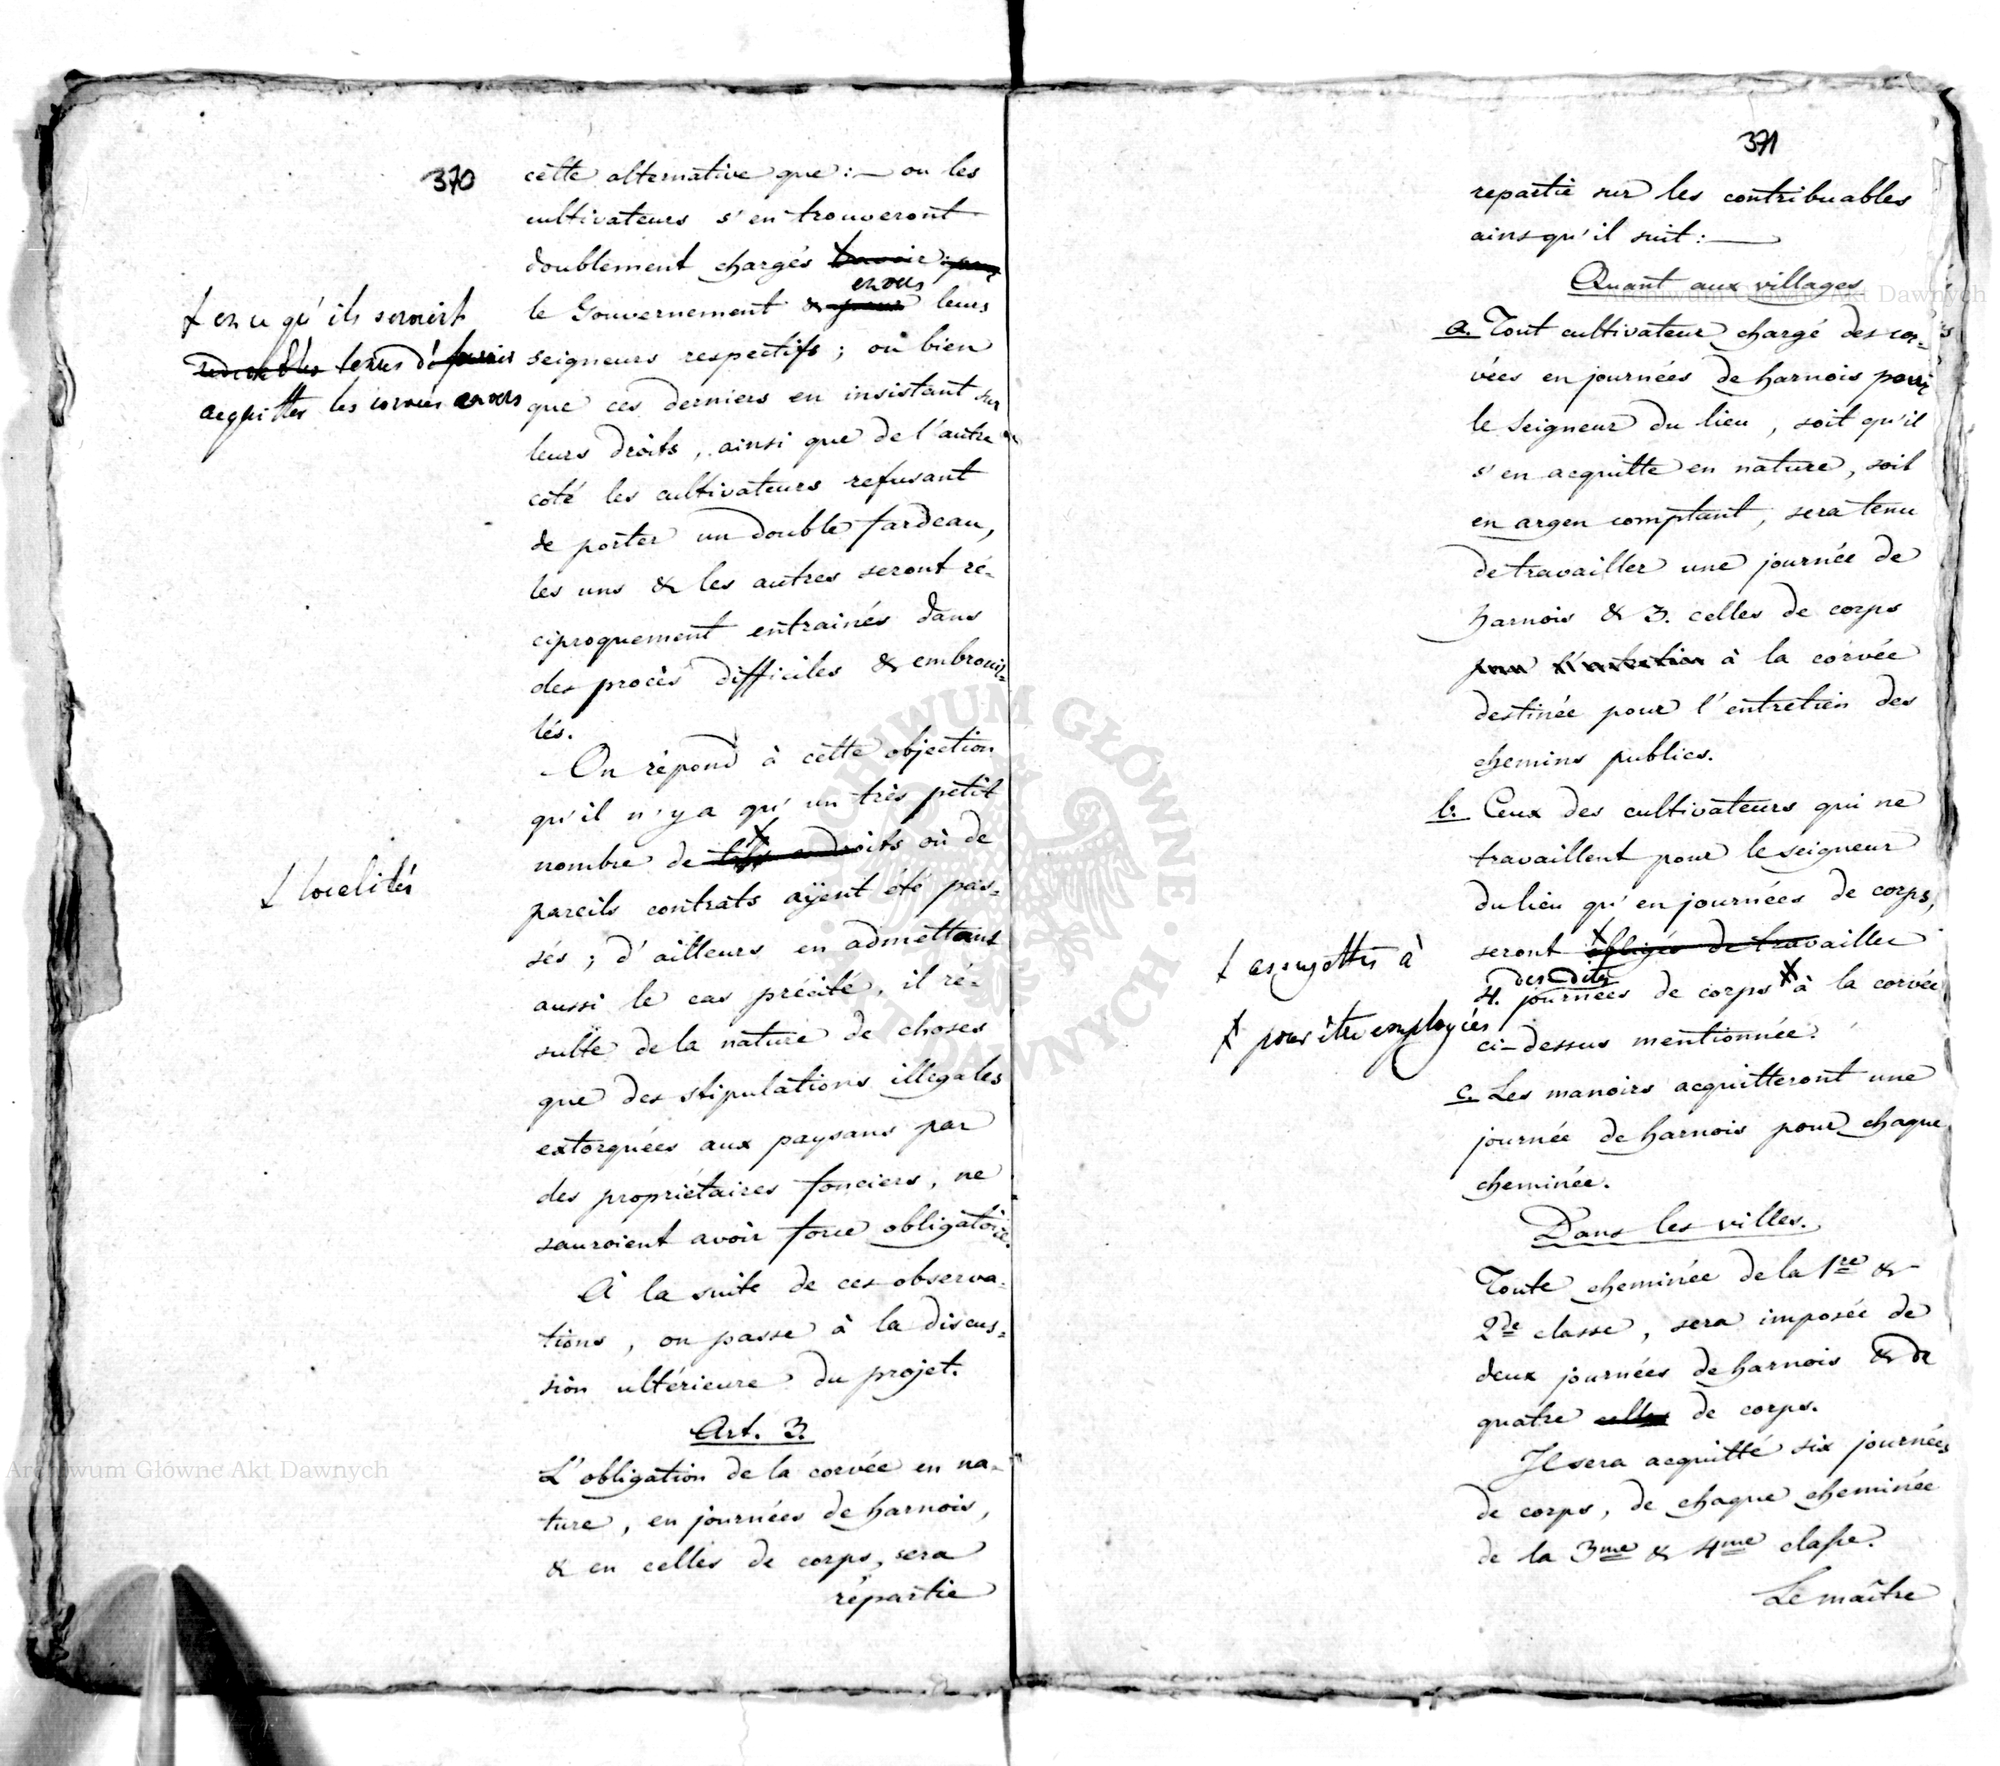 370
cette alternative que :— ou les
cultivateurs s'en trouveront
doublement chargés
envers
le Gouvernement & pour leurs
seigneurs respectifs ; ou bien
que ces derniers en insistant sur
leurs droits, ainsi que de l'autre
coté les cultivateurs refusant
de porter un double fardeau,
les uns & les autres seront ré-
ciproquement entrainés dans
des procès difficiles & embrouil-
lés.
On répond à cette objection
qu'il n'y a qu'un très petit
nombre de tels endroits où de
pareils contrats ayent été pas-
sés ; d'ailleurs en admettant
aussi le cas précité, il ré-
sulte de la nature de choses
que des stipulations illegales
extorquées aux paysans par
des propriétaires fonciers, ne
sauroient avoir force obligatoire.
À la suite de ces observa-
tions, on passe à la discus-
sion ultérieure du projet.
Art. 3.
L'obligation de la corvée en na-
ture, en journées de harnois,
& en celles de corps, sera
répartie
en ce qu'ils seroient
tenus d'
acquitter les corvées envers
localités
371
repartie sur les contribuables
ainsi qu'il suit :—
Quant aux villages
a. Tout cultivateur chargé des cor-
vées en journées de harnois pour
le Seigneur du lieu, soit qu'il
s'en acquitte en nature, soit
en argen comptant, sera tenu
de travailler une journée de
harnois & 3. celles de corps
pour l'entretien à la corvée
destinée pour l'entretien des
chemins publics.
b. Ceux des cultivateurs qui ne
travaillent pour le seigneur
du lieu qu'en journées de corps,
seront obligés de travailler
des dites
4. journées de corps à la corvée
ci-dessus mentionnée.
c. Les manoirs acquitteront une
journée de harnois pour chaque
cheminée.
Dans les villes.
Toute cheminée de la 1re &
2de classe, sera imposée de
deux journées de harnois & de
quatre celles de corps.
Il sera acquitté six journées
de corps, de chaque cheminée
de la 3me & 4me classe.
Le maître
assujettis à
pour être employées
Archiwum Główne Akt Dawnych
Archiwum Główne Akt Dawnych
ARCHIWUM GŁÓWNE AKT DAWNYCH